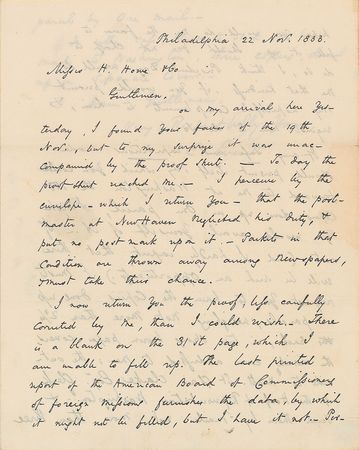 Philadelphia 22 Nov. 1833.
Messrs H. Howe & Co.
Gentlemen,
on my arrival here Yes-
terday, I found Your favor of the 19th
Nov., but to my surprize it was unac-
companied by the proof sheet. — To day the
proof sheet reached me. — I perceive by the
envelope - which I return You - that the post-
master at NewHaven neglected his duty, &
put no post mark upon it. - Packets in that
condition are thrown away among Newspapers,
& must take their chance.
I now return You the proof, less carefully
corrected by me, than I could wish. - There
is a blank on the 31st page, which I
am unable to fill up. The last printed
report of the American Board of Commissioners
of foreign missions furnishes the data, by which
it might not be filled, but I have it not. - Per-